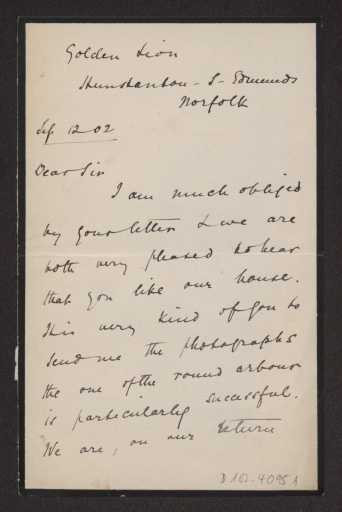 Golden Lion
Hunstanton - S - Edmunds
Norfolk
Sep 12 02
Dear Sir
I am much obliged
by your letter & we are
both very pleased to hear
that you like our house.
It is very kind of you to
send me the photographs
the one of the round arbour
is particularly successful.
We are, on our return
D 161-4095 A